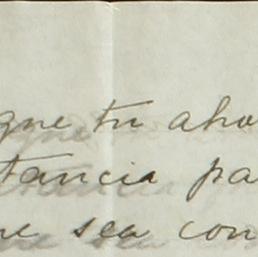 que tu aho
tancia pa
ne sea con